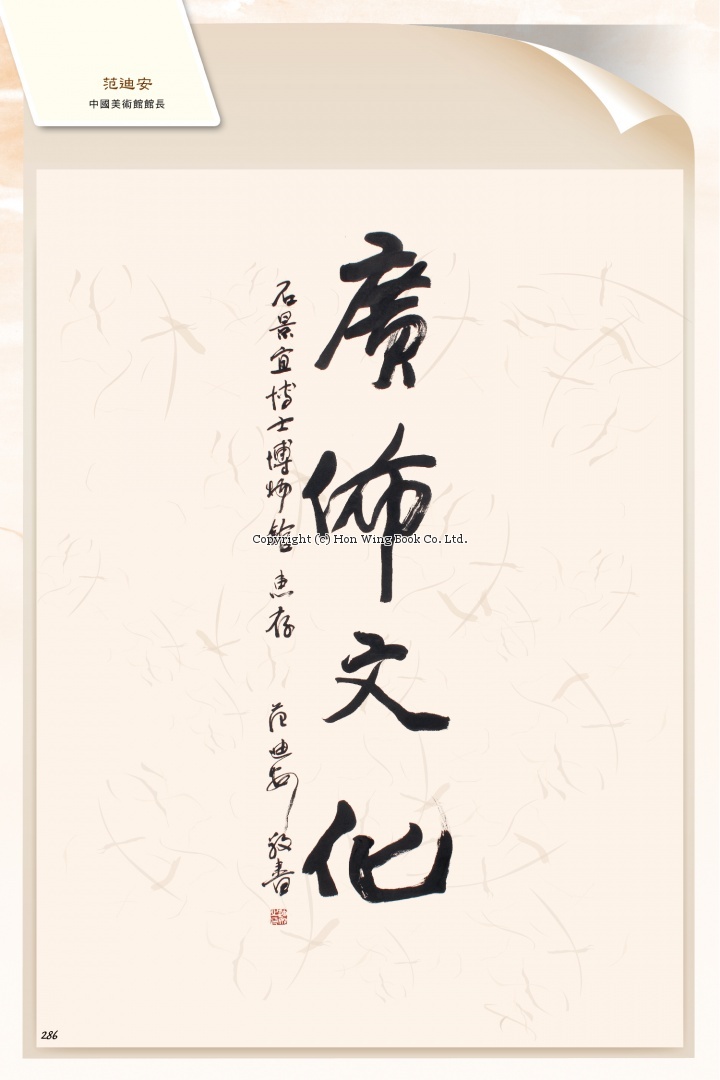 范迪安
中國美術館館長
廣佈文化
石景宜博士博物館 惠存 范迪安 敬書
Copyright (c) Hon Wing Book Co. Ltd.
286